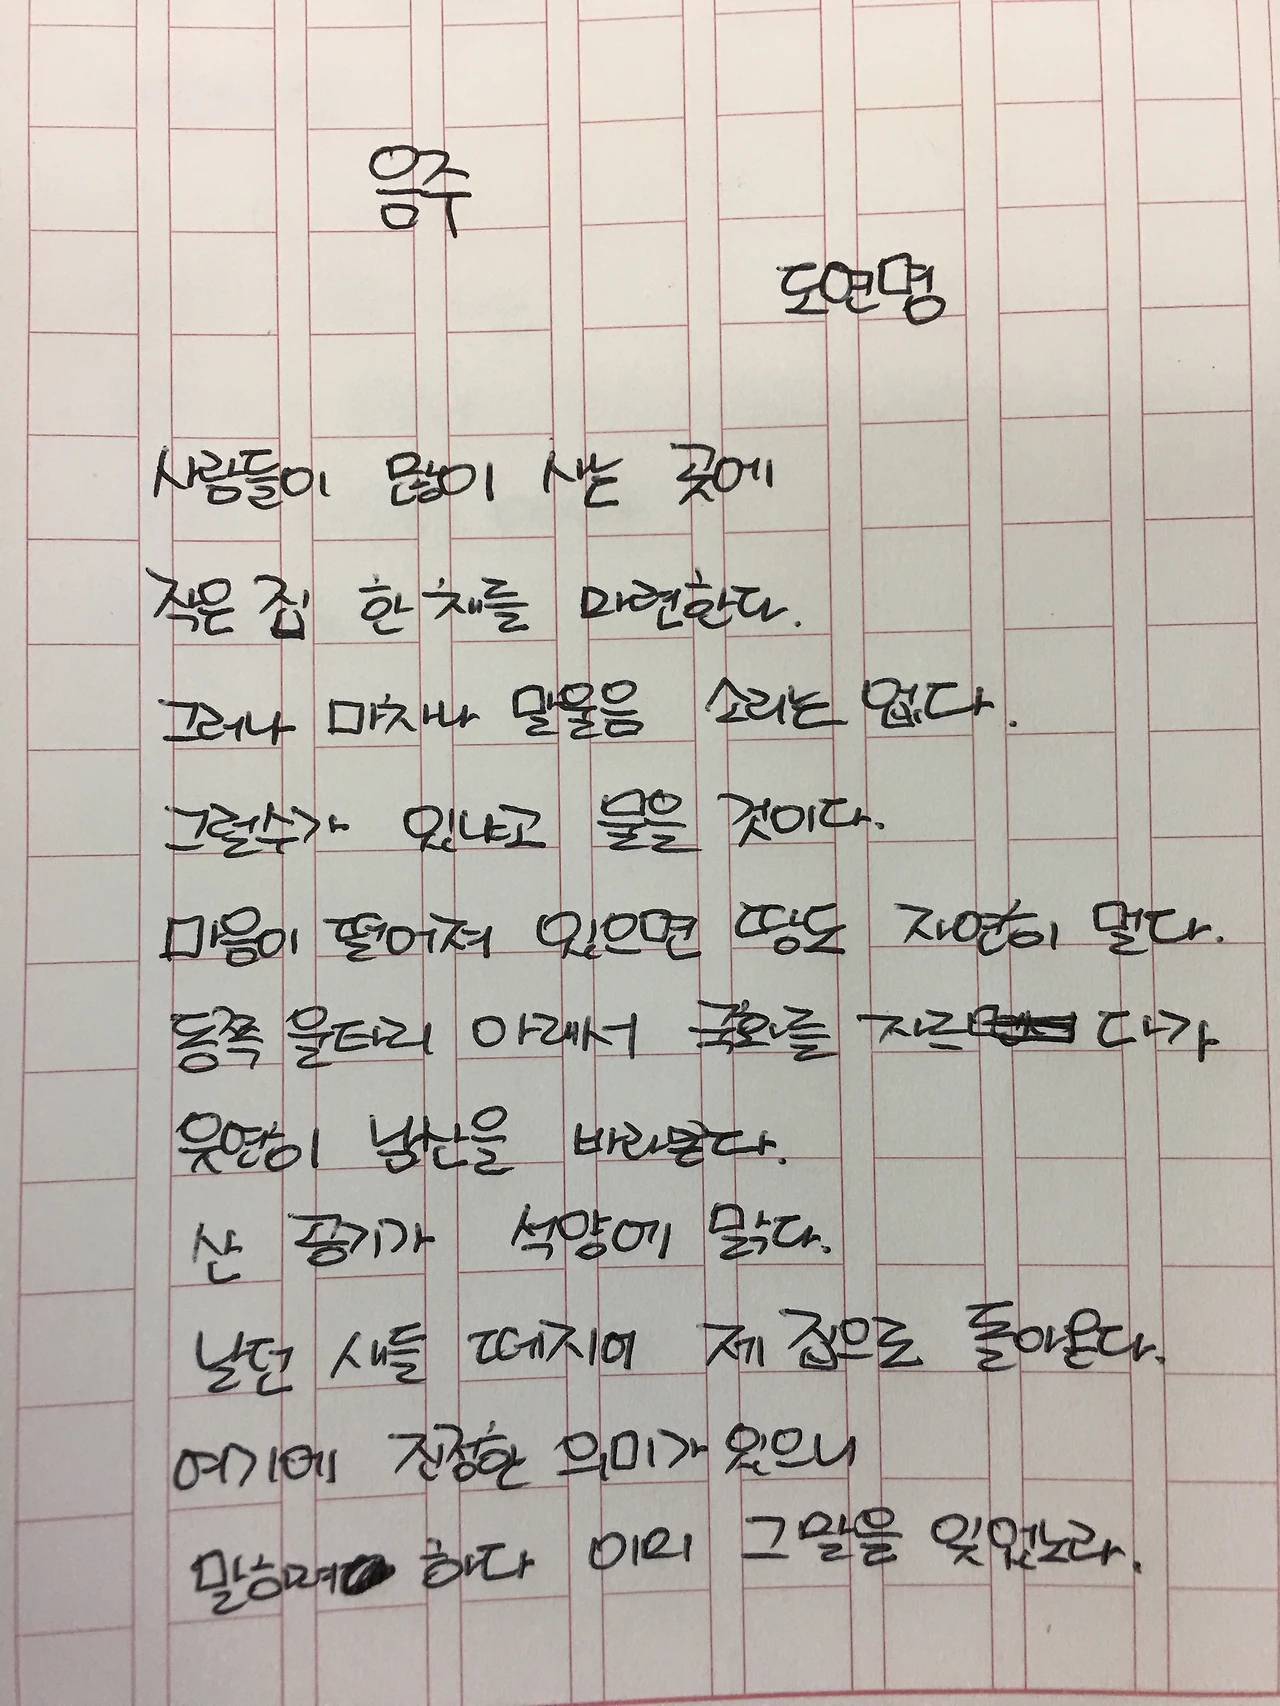 음주
도연명
사람들이 많이 사는 곳에
작은 집 한 채를 마련한다.
그러나 마차나 말울음 소리는 없다.
그럴수가 있냐고 물을 것이다.
마음이 떨어져 있으면 땅도 자연히 멀다.
동쪽 울타리 아래서 국화를 자르 다가
우연히 남산을 바라본다.
산 공기가 석양에 맑다.
날던 새들 떼지어 제 집으로 돌아온다.
여기에 진정한 의미가 있으니
말하려 하다 이미 그 말을 잊었노라.